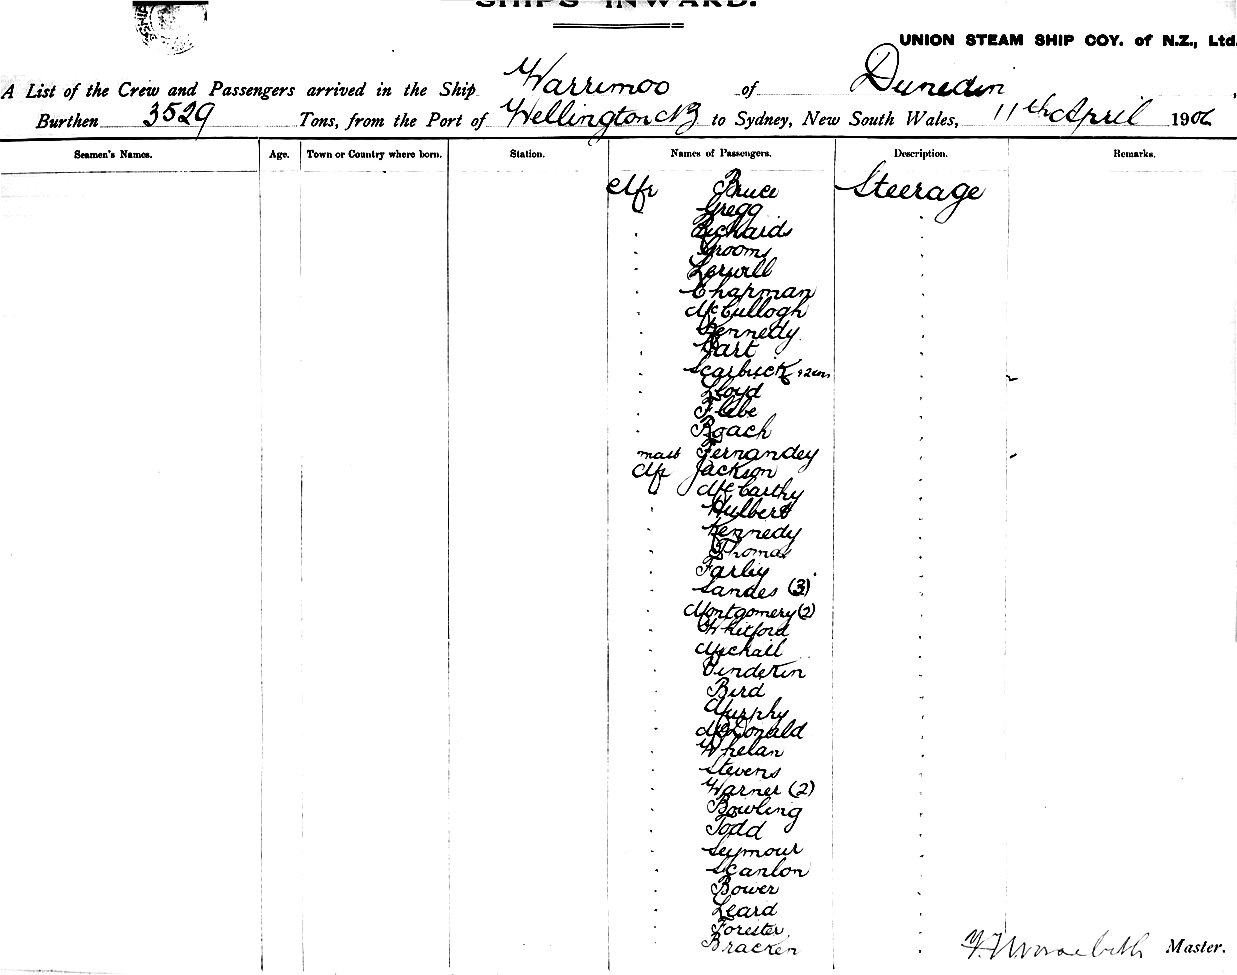 SHIPS INWARD.
UNION STEAM SHIP COY. of N.Z., Ltd.
A List of the Crew and Passengers arrived in the Ship Warrimoo of Dunedin,
Burthen 3529 Tons, from the Port of Wellington NZ to Sydney, New South Wales, 11th April 1906
Seamen's Names. Age. Town or Country where born. Station. Names of Passengers. Description. Remarks.
Mr Bruce Steerage
Gregg
Richards
Grooms
Chapman
McCullogh
Kennedy
Hart
Scarbuck
Lloyd
Flebe
Roach
Fernandey
Mr Jackson
McCarthy
Hulbert
Kennedy
Thomas
Farley
Sandes (3)
Montgomery (2)
Whitford
Michail
Bird
Murphy
McDonald
Whelan
Stevens
Warner (2)
Bowling
Todd
Seymour
Scanlon
Bower
Leard
Forester
Bracken
Master.